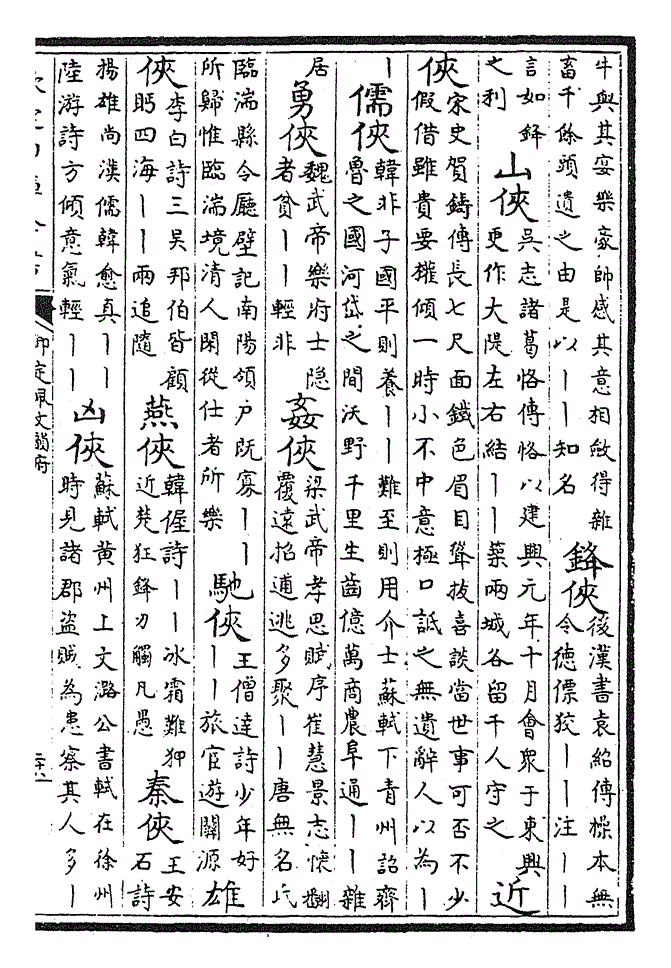 牛與其宴樂豪帥感其意相斂得雜
畜千餘頭遺之由是以丨丨知名
鋒俠
後漢書袁紹傳操本無
令德僄狡丨丨注丨丨
言如鋒
之利
山俠
吳志諸葛恪傳恪以建興元年十月會衆于東興
更作大隄左右結丨丨築兩城各留千人守之
近
俠
宋史賀鑄傳長七尺面鐵色眉目聳拔喜談當世事可否不少
假借雖貴要權傾一時小不中意極口詆之無遺辭人以為丨
丨
儒俠
韓非子國平則養丨丨難至則用介士蘇軾下青州詔齊
魯之國河岱之間沃野千里生齒億萬商農阜通丨丨雜
居
勇俠
魏武帝樂府士隱
者貧丨丨輕非
姦俠
梁武帝孝思賦序崔慧景志懷翻
覆遠招逋逃多聚丨丨唐無名氏
臨湍縣令廳壁記南陽領户既寡丨丨
所歸惟臨湍境清人閑從仕者所樂
馳俠
王僧達詩少年好
丨丨旅宦遊關源
雄
俠
李白詩三吳邦伯皆顧
眄四海丨丨兩追隨
燕俠
韓偓詩丨丨冰霜難狎
近楚狂鋒刃觸凡愚
秦俠
王安
石詩
揚雄尚漢儒韓愈真丨丨
陸游詩方傾意氣輕丨丨
凶俠
蘇軾黃州上文潞公書軾在徐州
時見諸郡盜賊為患察其人多丨
御定佩文韻府